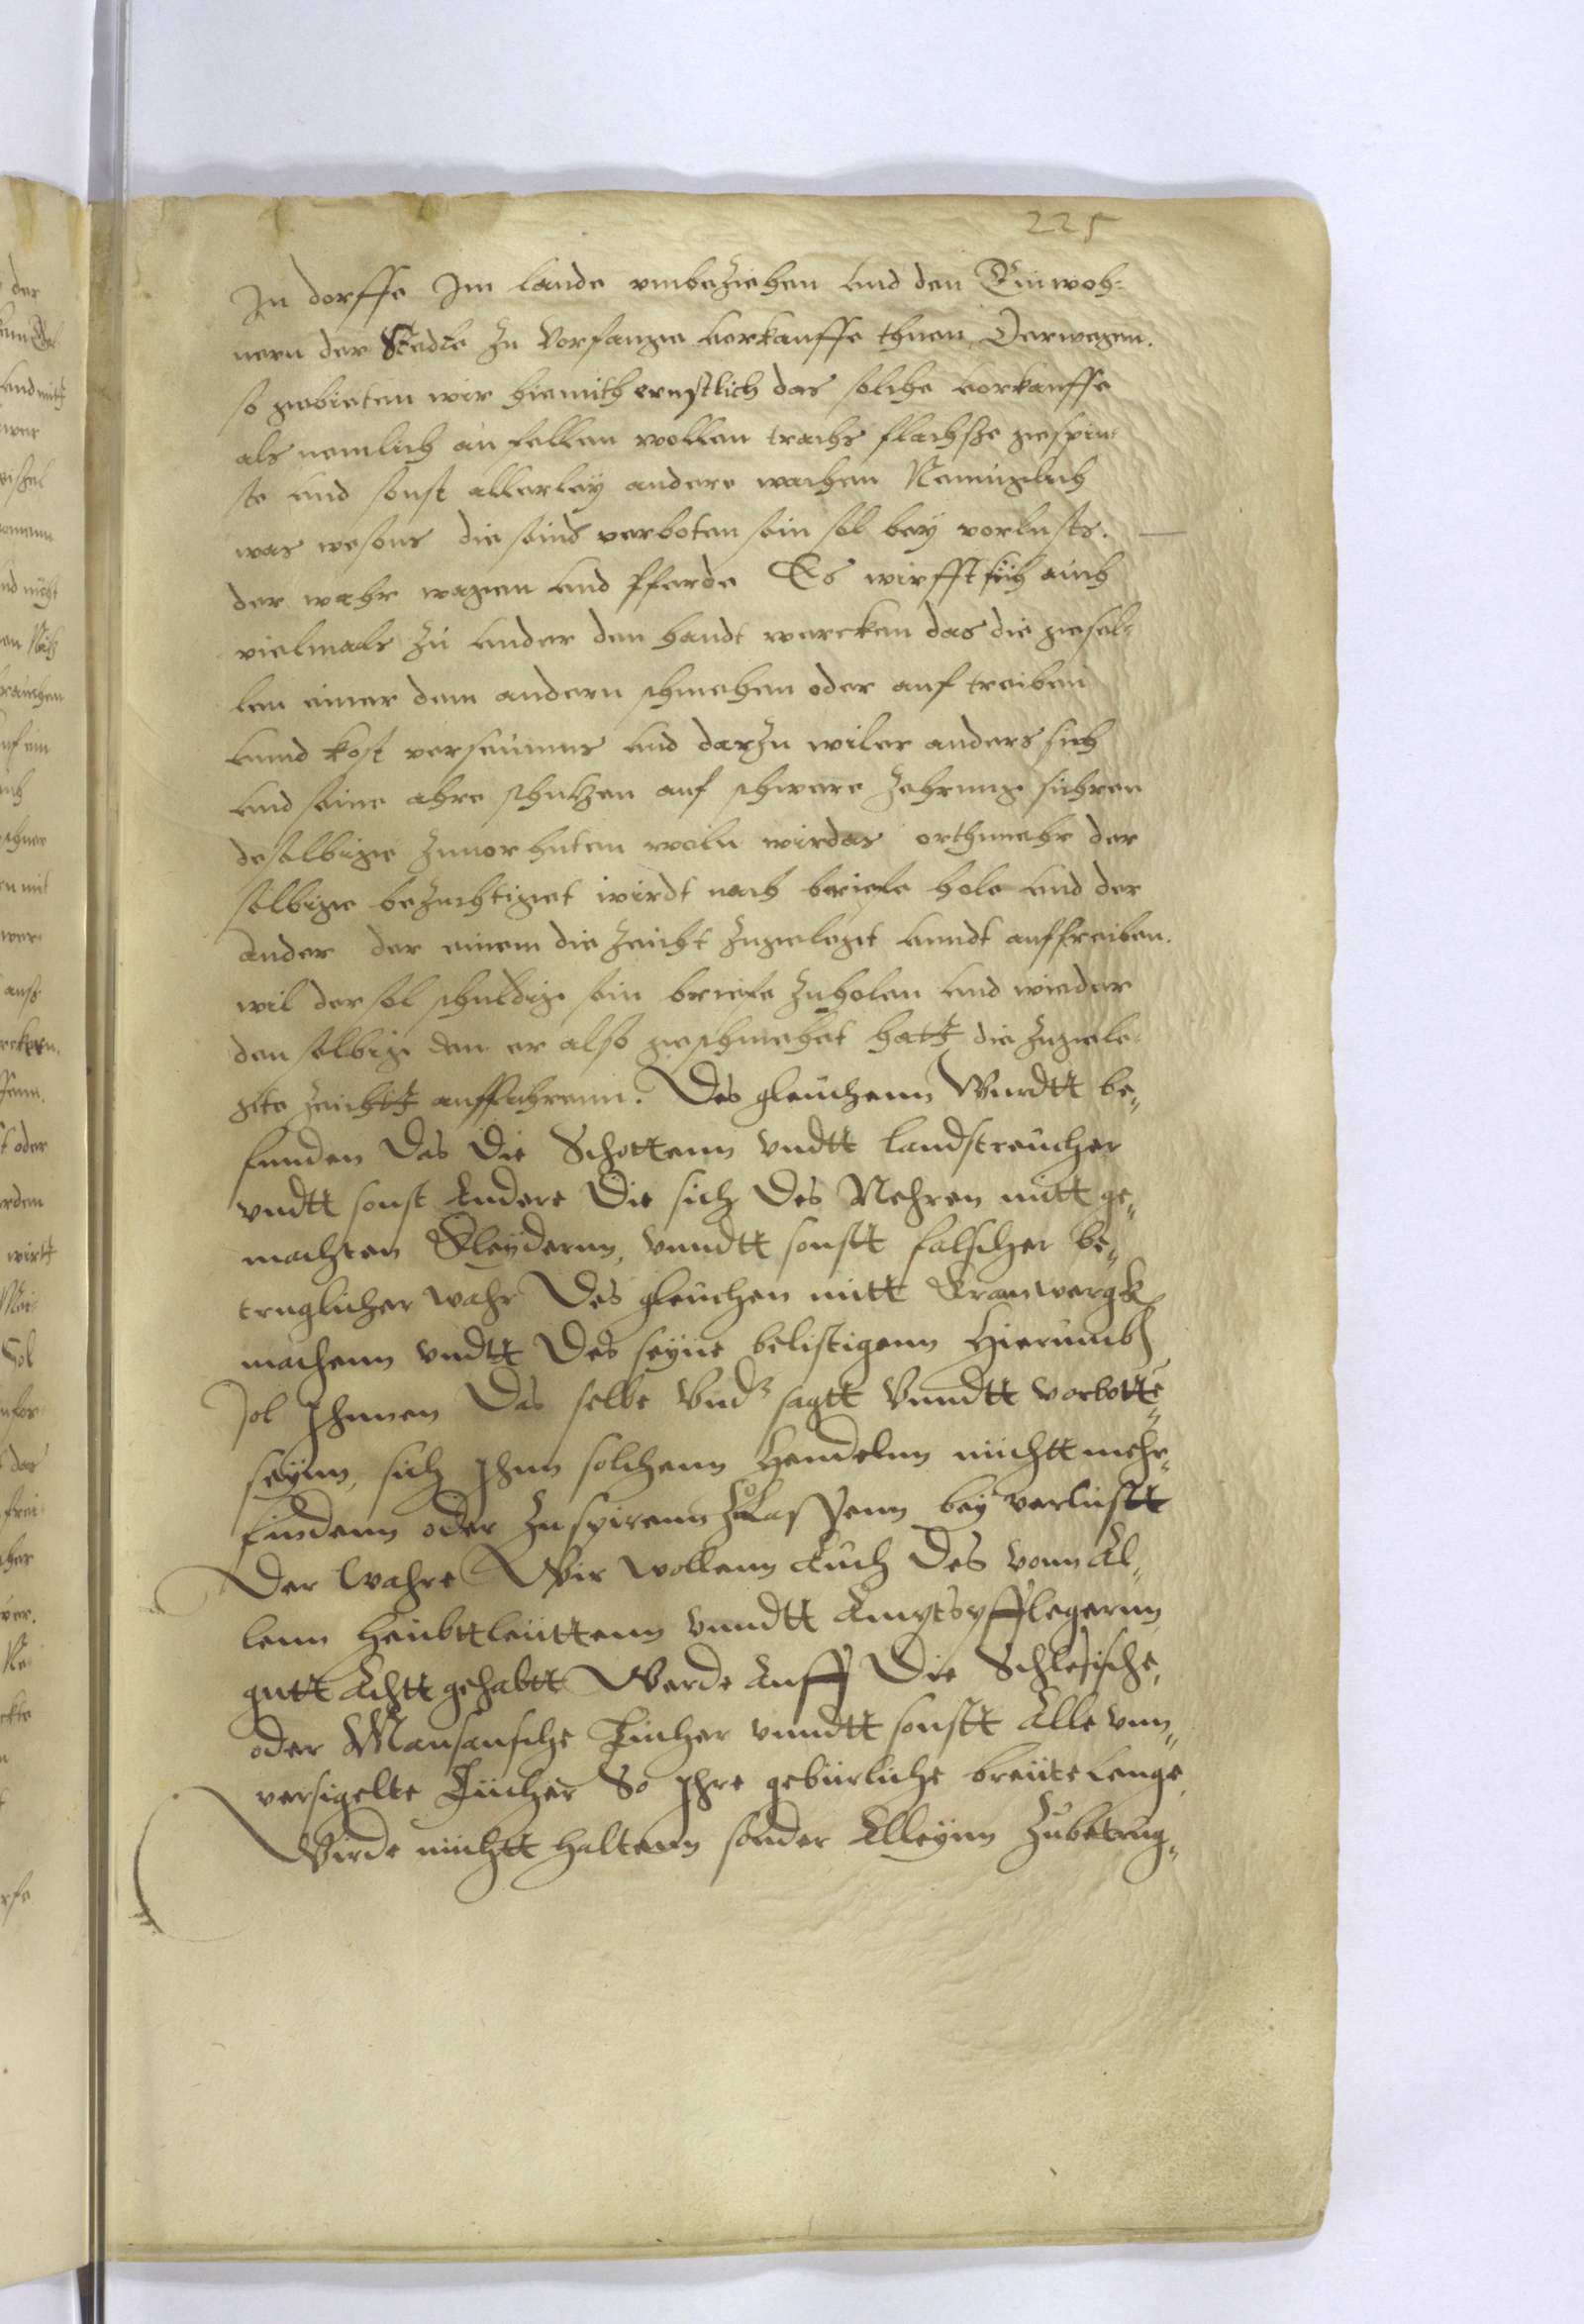 225
In dorffe Im lande vmbeziehen vnd den Einwoh¬
nern der Stedte zu vorfange vorkauffe thuen, Derwegen.
so gebieten wir hiemith ernstlich das solche vorkauffe
als nemlich an fellen wollen wachs flachsse gespin¬
ste vnd sonst allerley andere wahren
was wesens die seind verboten sein sol bey vorlusts.
der wahr wagen vnd Pferde Es wirfft sich auch
vielmals zu vnder den handt wercken das die gesel¬
len einer dem andern schmehen oder auf treiben
vnnd kost verseumnus vnd darzu wil er anders sich
vnd seine ehre schutzen auf schwere zehrung fuhren
deselbige zuuorhuten woln wir das
selbige bezuchtiget wirdt nach briefe hole vnd der
ander der einem die zeicht zugelegt vnndt auffreiben.
wil der sol schuldig sein briefe zuholen vnd wieder
den selbig den er also geschmehet hatt die zugele¬
gte zeichtt auffuhrenn. Des gleichenn Wurdtt be¬
funden Das Die Schottenn vndtt landstreucher
vndtt sonst Andere Die sich Des Nehren mitt ge¬
machten Kleyderun, vnndtt sonstt falscher be¬
truglicher wahr Des gleichen mitt Kramwergk
machenn vndtt Des seyne belistigenn Hierumb
sol Ihnnen Das selbe vnd sagtt vnndtt vorbotte
seynn, sich Ihnn solchenn Handelnn nichtt mehr
findenn oder zu spirenn zu Lassenn bey verlustt
Der wahre Wir wollenn Auch Des vonn Al¬
lenn Heubttleuttenn vnndtt Ampts pfflegernn
gutt Achtt gehabtt Werde Auff Die Schlesische,
oder Tucher vnndtt sonstt Alle vnn¬
versigelte Tücher So Ihre gebürliche breite Lenge
Wirde nichtt haltenn sonder Alleynn Zubetrug¬